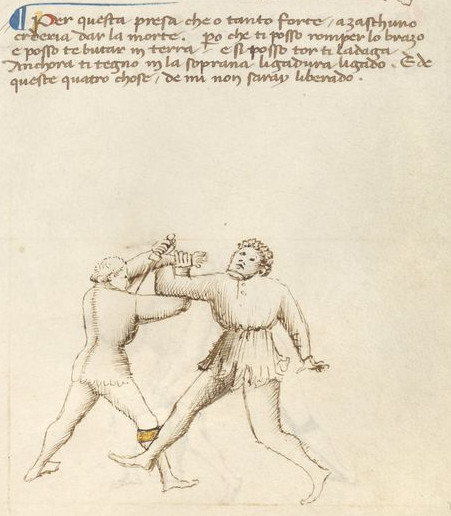 Per questa presa che o tanto forte, a zaschuno
crderia dar la morte. po che ti posso romper lo brazo
e posso te butar in terra, e si posso tor ti la daga.
Anchora ti tegno in la soprana ligadura ligado. E de
queste quatro chose, de mi non saray liberado.